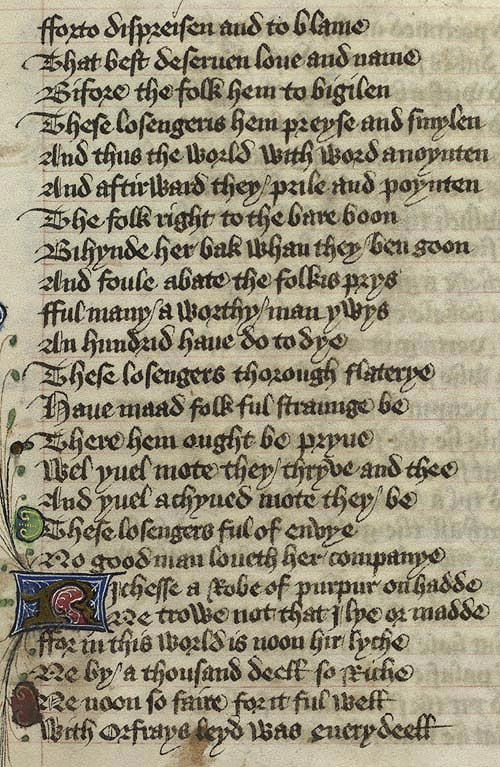 fforto dispreisen and to blame
That best deseruen loue and name
Bifore the folk hem to bigilen
These losengeris hem preyse and smylen
And thus the world with word anoynten
And aftirward they prile and poynten
The folk right to the bare boon
Bihynde her bak whan they ben goon
And foule abate the folkis prys
fful many a worthy man ywys
An hundrid haue do to dye
These losengers thorough flaterye
Haue maad folk ful straunge be
There hem ought be pryue
Wel yuel mote they thryve and thee
And yuel achyued mote they be
These losengers ful of envye
No good man loueth her companye
Richesse a Robe of purpur on hadde
Ne trowe not that I lye or madde
ffor in this world is noon hir lyche
Ne by a thousand deell so Riche
Ne noon so faire for it ful well
With Orfrays leyd was euerydeell